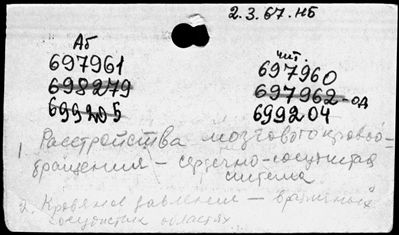 2.3.67.НБ
Аб
697961
698279
699205
чит.
697960
697962-од
699204
1 Расстройства мозгового кровооб-
ращения – сердечно-сосудистая
система
2. Кровяное давление – в различных
сосудистых областях